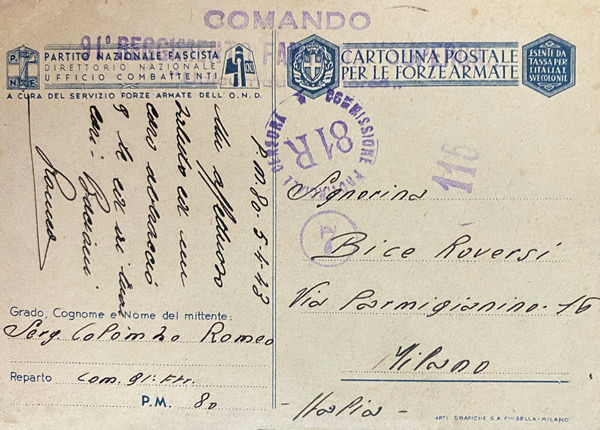 COMANDO
91° REGGIMENTO
P. N. F.
PARTITO NAZIONALE FASCISTA
DIRETTORIO NAZIONALE
UFFICIO COMBATTENTI
A CURA DEL SERVIZIO FORZE ARMATE DELL'O.N.D.
CARTOLINA POSTALE
PER LE FORZE ARMATE
ESENTE DA
TASSA PER
L'ITALIA E
SUE COLONIE
COMMISSIONE PROVINCIALE CENSURA
81R
116
P.M. 80. 5-4-43
Un affettuoso
saluto ed un
caro abbraccio
a te ed ai tuoi
cari. Bacioni
Romeo
Signorina
Bice Roversi
Via Parmigianino. 16
Milano
- Italia -
Grado, Cognome e Nome del mittente:
Serg. Colombo Romeo
Reparto Com. 91° Ftr.
P.M. 80
ARTI GRAFICHE S.A. FLLI SELLA - MILANO